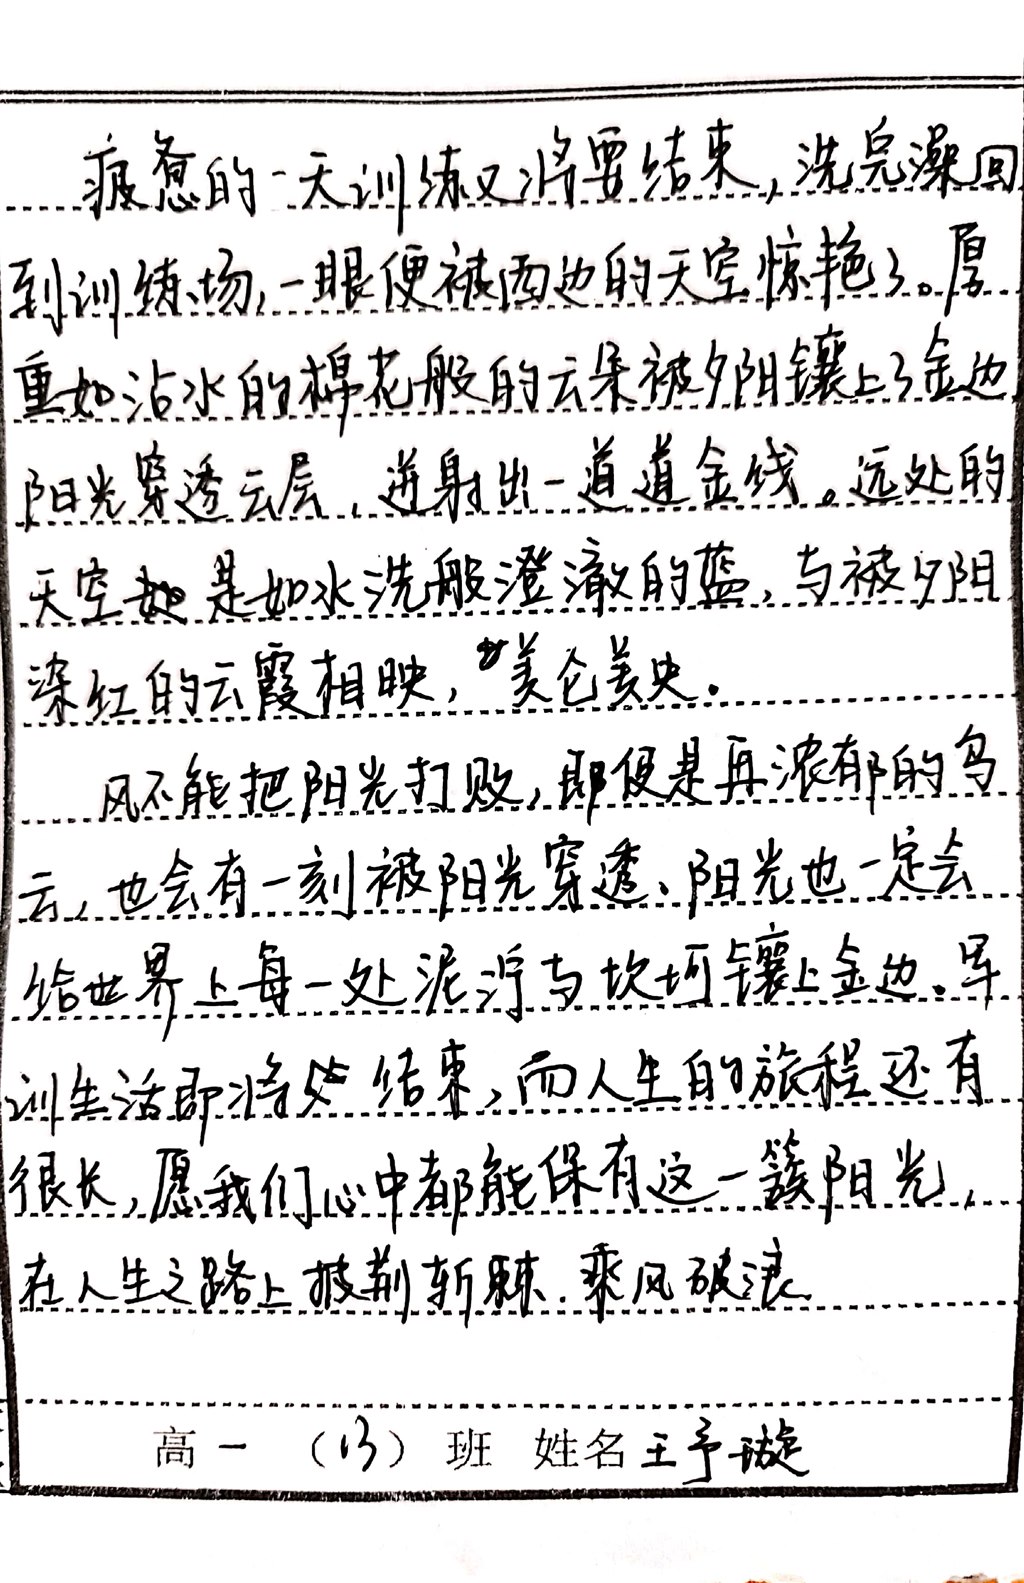 疲惫的一天训练又将要结束,洗完澡回
到训练场,一眼便被西边的天空惊艳了。厚
重如沾水的棉花般的云朵被夕阳镶上了金边
阳光穿透云层,迸射出一道道金线。远处的
天空是如水洗般澄澈的蓝,与被夕阳
染红的云霞相映,美仑美奂。
风不能把阳光打败,即便是再浓郁的乌
云,也会有一刻被阳光穿透、阳光也一定会
给世界上每一处泥泞与坎坷镶上金边。军
训生活即将结束,而人生的旅程还有
很长,愿我们心中都能保有这一簇阳光,
在人生之路上披荆斩棘.乘风破浪
高一(13)班 姓名王予璇